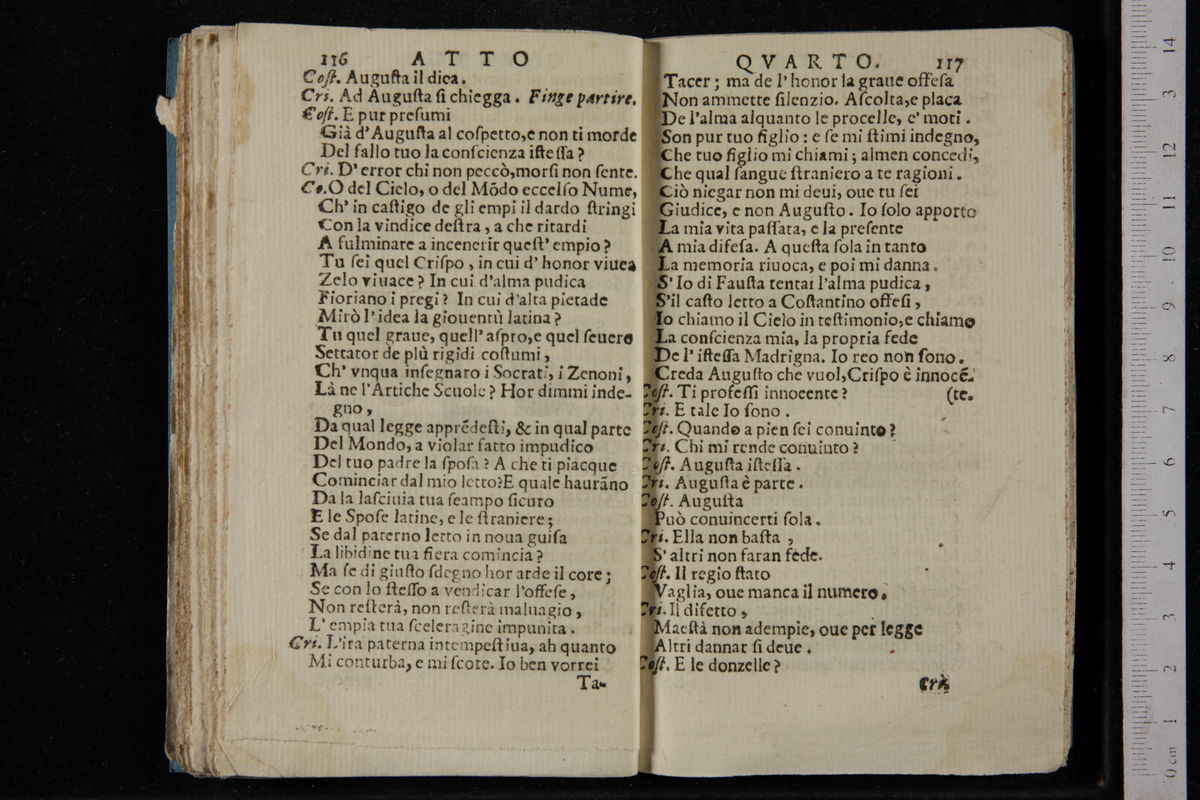 116 ATTO
Coſt. Auguſta il dica.
Cri. Ad Auguſta ſi chiegga. Finge partire.
Coſt. E pur preſumi
Già d'Auguſta al coſpetto,e non ti morde
Del fallo tuo la conſcienza iſteſſa?
Cri. D'error chi non peccò,morſi non ſente.
Co.O del Cielo, o del Mõdo eccelſo Nume,
Ch'in caſtigo de gli empi il dardo ſtringi
Con la vindice deſtra, a che ritardi
A fulminare a incenerir queſt'empio?
Tu ſei quel Criſpo, in cui d'honor viuea
Zelo viuace? In cui d'alma pudica
Fioriano i pregi? In cui d'alta pietade
Mirò l'idea la giouentù latina?
Tu quel graue, quell'aſpro,e quel ſeuero
Settator de più rigidi coſtumi,
Ch'vnqua inſegnaro i Socrati, i Zenoni,
Là ne l'Artiche Scuole? Hor dimmi inde-
gno,
Da qual legge apprẽdeſti, & in qual parte
Del Mondo, a violar fatto impudico
Del tuo padre la ſpoſa? A che ti piacque
Cominciar dal mio letto?E quale haurãno
Da la laſciuia tua ſcampo ſicuro
E le Spoſe latine, e le ſtraniere;
Se dal paterno letto in noua guiſa
La libidine tua fiera comincia?
Ma ſe di giuſto ſdegno hor arde il core;
Se con lo ſteſſo a vendicar l'offeſe,
Non reſterà, non reſterà maluagio,
L'empia tua ſceleragine impunita.
Cri. L'ira paterna intempeſtiua, ah quanto
Mi conturba, e mi ſcote. Io ben vorrei
Ta-
QVARTO. 117
Tacer; ma de l'honor la graue offeſa
Non ammette ſilenzio. Aſcolta,e placa
De l'alma alquanto le procelle, e'moti.
Son pur tuo figlio: e ſe mi ſtimi indegno,
Che tuo figlio mi chiami; almen concedi,
Che qual ſangue ſtraniero a te ragioni.
Ciò niegar non mi deui, oue tu ſei
Giudice, e non Auguſto. Io ſolo apporto
La mia vita paſſata, e la preſente
A mia difeſa. A queſta ſola in tanto
La memoria riuoca, e poi mi danna.
S'Io di Fauſta tentai l'alma pudica,
S'il caſto letto a Coſtantino offeſi,
Io chiamo il Cielo in teſtimonio,e chiamo
La conſcienza mia, la propria fede
De l'iſteſſa Madrigna. Io reo non ſono.
Creda Auguſto che vuol,Criſpo è innocẽ-
Coſt. Ti profeſſi innocente? (te.
Cri. E tale Io ſono.
Coſt. Quando a pien ſei conuinto?
Cri. Chi mi rende conuinto?
Coſt. Auguſta iſteſſa.
Cri. Auguſta è parte.
Coſt. Auguſta
Può conuincerti ſola.
Cri. Ella non baſta,
S'altri non faran fede.
Coſt. Il regio ſtato
Vaglia, oue manca il numero.
Cri. Il difetto,
Maeſtà non adempie, oue per legge
Altri dannar ſi deue.
Coſt. E le donzelle?
Cri.